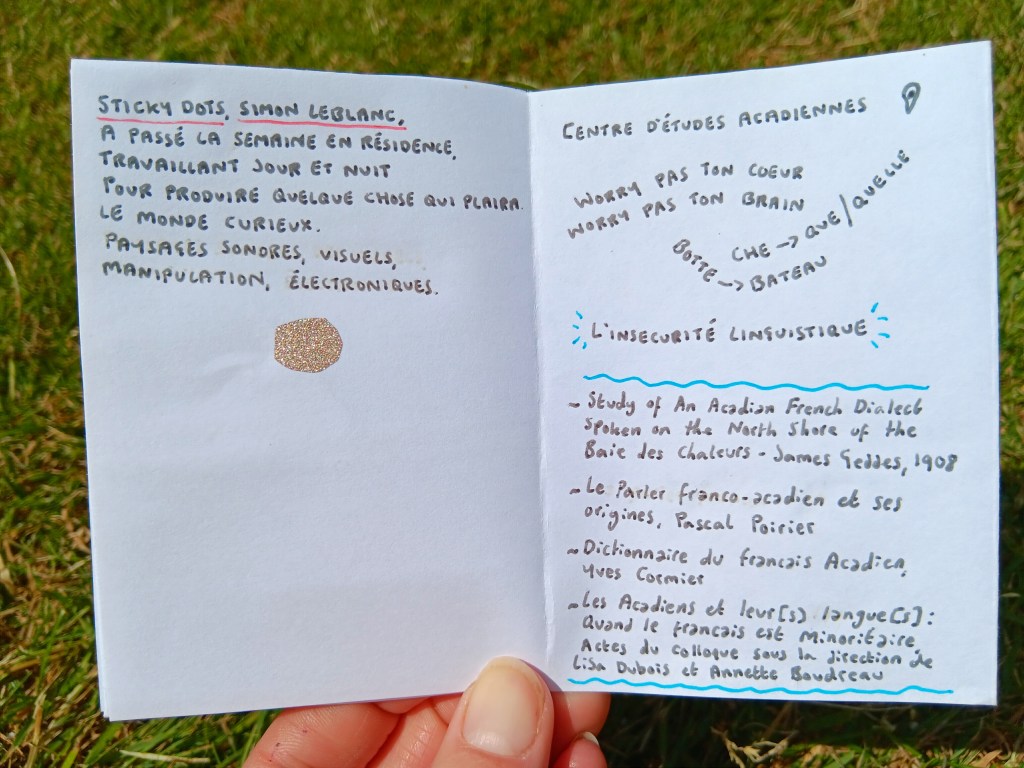 STICKY DOTS, SIMON LEBLANC,
A PASSÉ LA SEMAINE EN RÉSIDENCE,
TRAVAILLANT JOUR ET NUIT
POUR PRODUIRE QUELQUE CHOSE QUI PLAIRA
LE MONDE CURIEUX.
PAYSAGES SONORES, VISUELS,
MANIPULATION, ÉLECTRONIQUES.
CENTRE D'ÉTUDES ACADIENNES
WORRY PAS TON COEUR
WORRY PAS TON BRAIN
CHE -> QUE/QUELLE
BOTTE -> BATEAU
L'INSECURITÉ LINGUISTIQUE
- Study of An Acadian French Dialect
Spoken on the North Shore of the
Baie des Chaleurs - James Geddes, 1908
- Le Parler franco-acadien et ses
origines, Pascal Poirier
- Dictionnaire du francais Acadien,
Yves Cormier
- Les Acadiens et leur[s] langue[s]:
Quand le francais est minoritaire,
Actes du colloque sous la direction de
Lisa Dubois et Annette Boudreau